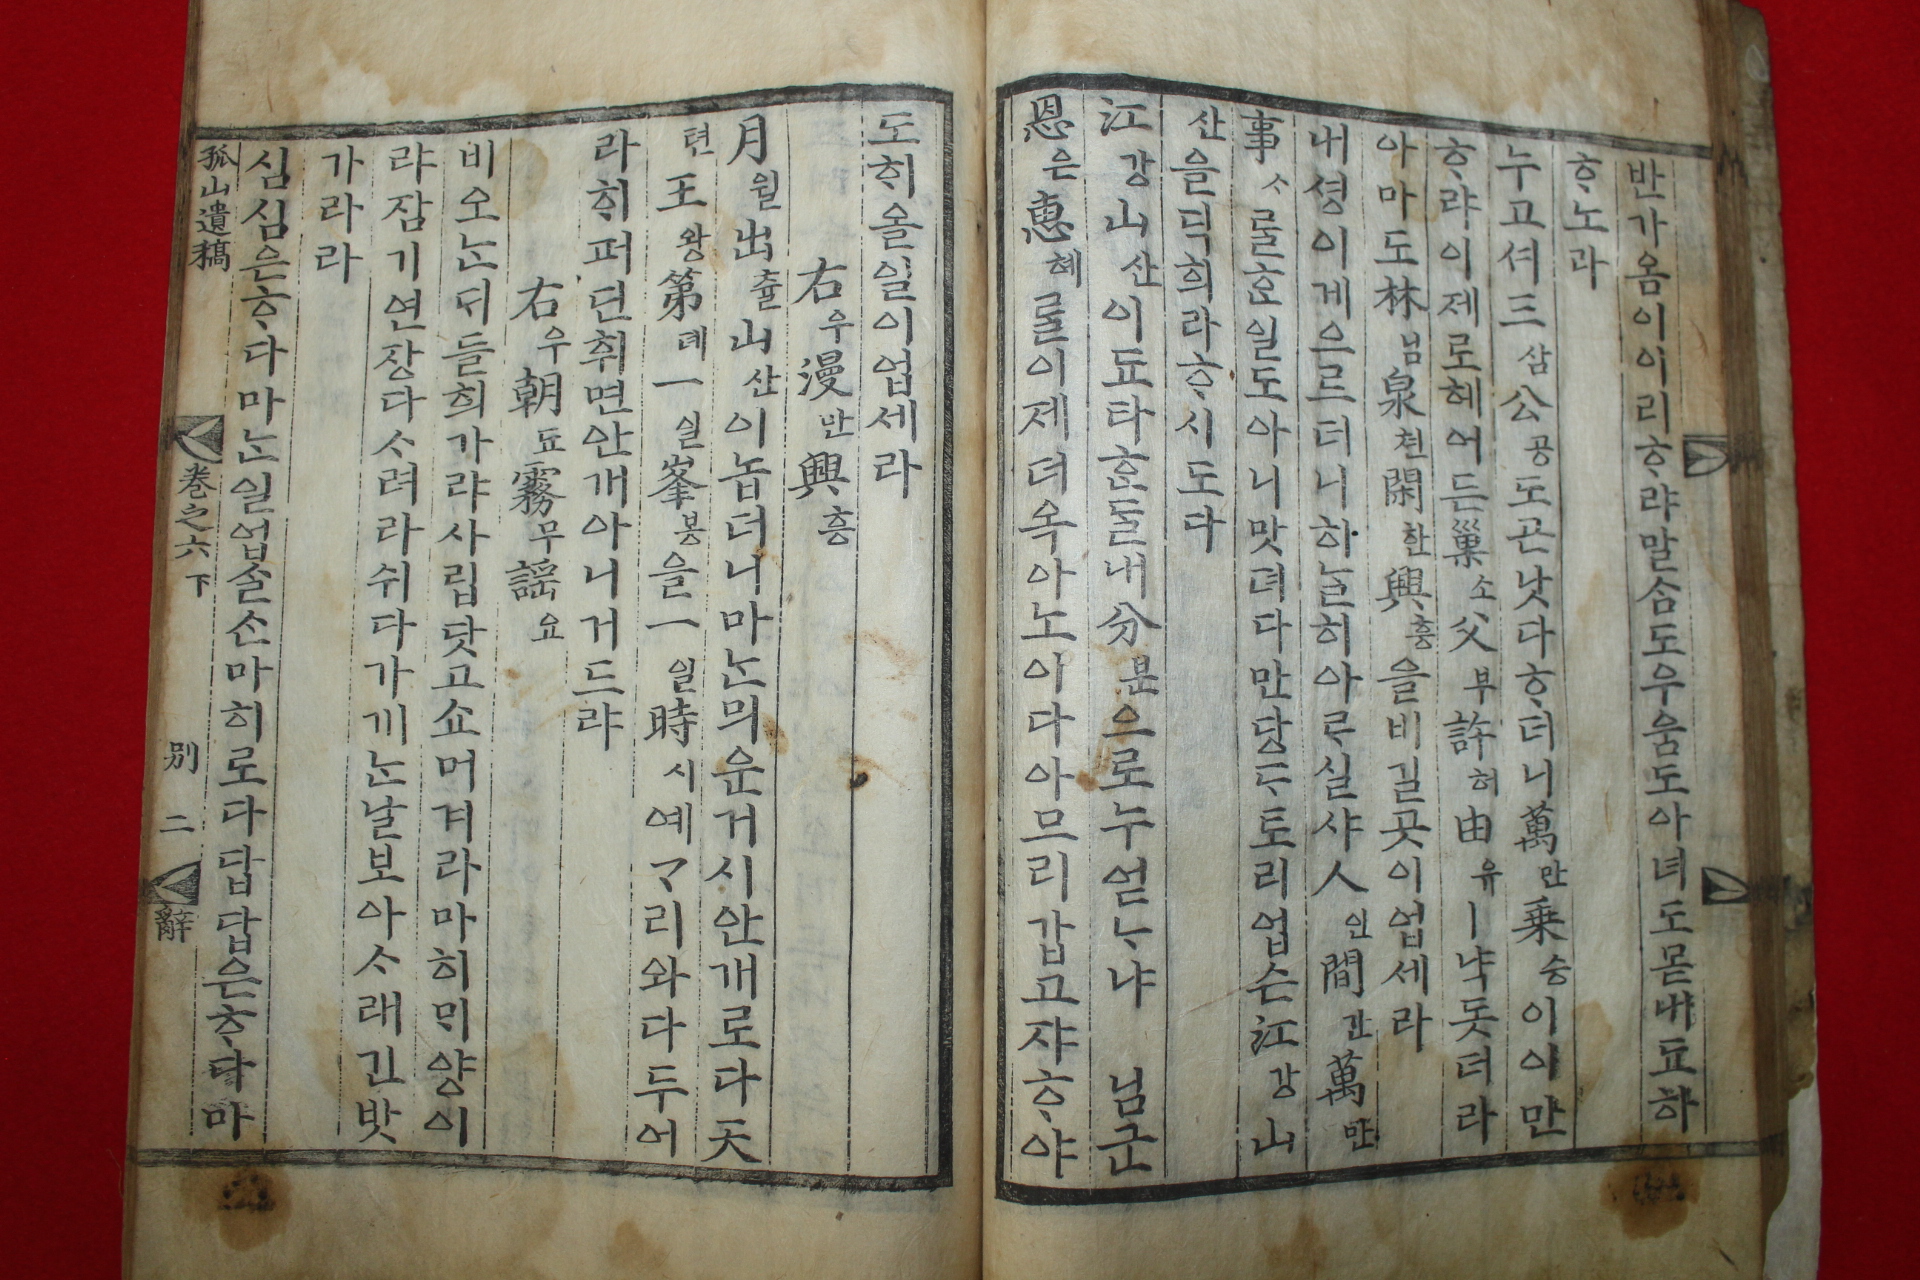 반가옴이이리ᄒᆞ랴말ᄉᆞᆷ도우움도아녀도몯내됴하
ᄒᆞ노라
누고셔三삼公공도곤낫다ᄒᆞ더니萬만乘승이이만
ᄒᆞ랴이제로헤어든巢소父부許허由유ㅣ냑돗더라
아마도林님泉쳔閑한興흥을비길곳이업세라
내셩이게으르더니하ᄂᆞᆯ히아ᄅᆞ실샤人인間간萬만
事ᄉᆞᄅᆞᆯᄒᆞᆫ일도아니맛뎌다만당ᄃᆞ토리업슨江강山
산을딕희라ᄒᆞ시도다
江강山산이됴타ᄒᆞᆫᄃᆞᆯ내分분으로누얻ᄂᆞ냐 님군
恩은惠혜ᄅᆞᆯ이제더옥아노아다아므리갑고쟈ᄒᆞ야
도ᄒᆡ올일이업세라
右우漫만興흥
月월出츌山산이놉더니마ᄂᆞᆫ믜운거시안개로다天
텬王왕第뎨一일峯봉을一일時시예ᄀᆞ리와다두어
라ᄒᆡ퍼딘휘면안개아니거드랴
右우朝됴霧무謠요
비오ᄂᆞᆫᄃᆡ들희가랴사립닷고쇼머겨라마히ᄆᆡ양이
랴잠기연장다ᄉᆞ려라쉬다가개ᄂᆞᆫ날보아ᄉᆞ래긴밧
가라라
심심은ᄒᆞ다마ᄂᆞᆫ일업ᄉᆞᆯᄉᆞᆫ마히로다답답은ᄒᆞ다마
孤山遺稿 卷之六 下 別 二 辭